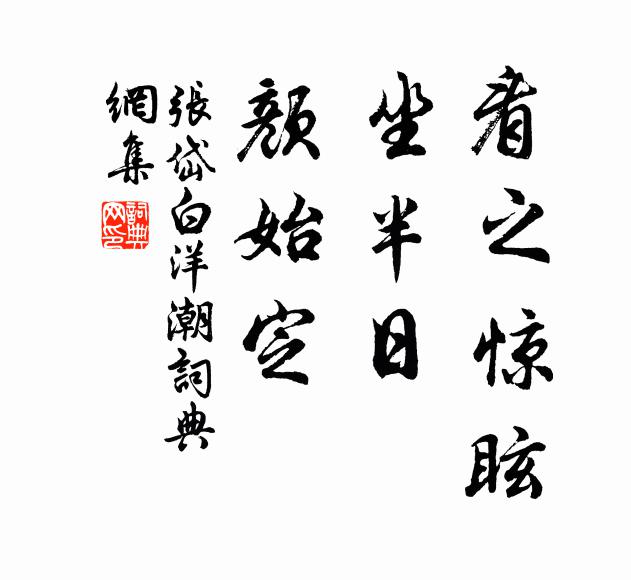 看之惊眩
坐半日
颜始定
張岱白洋潮詞典
網集
詞典
网印